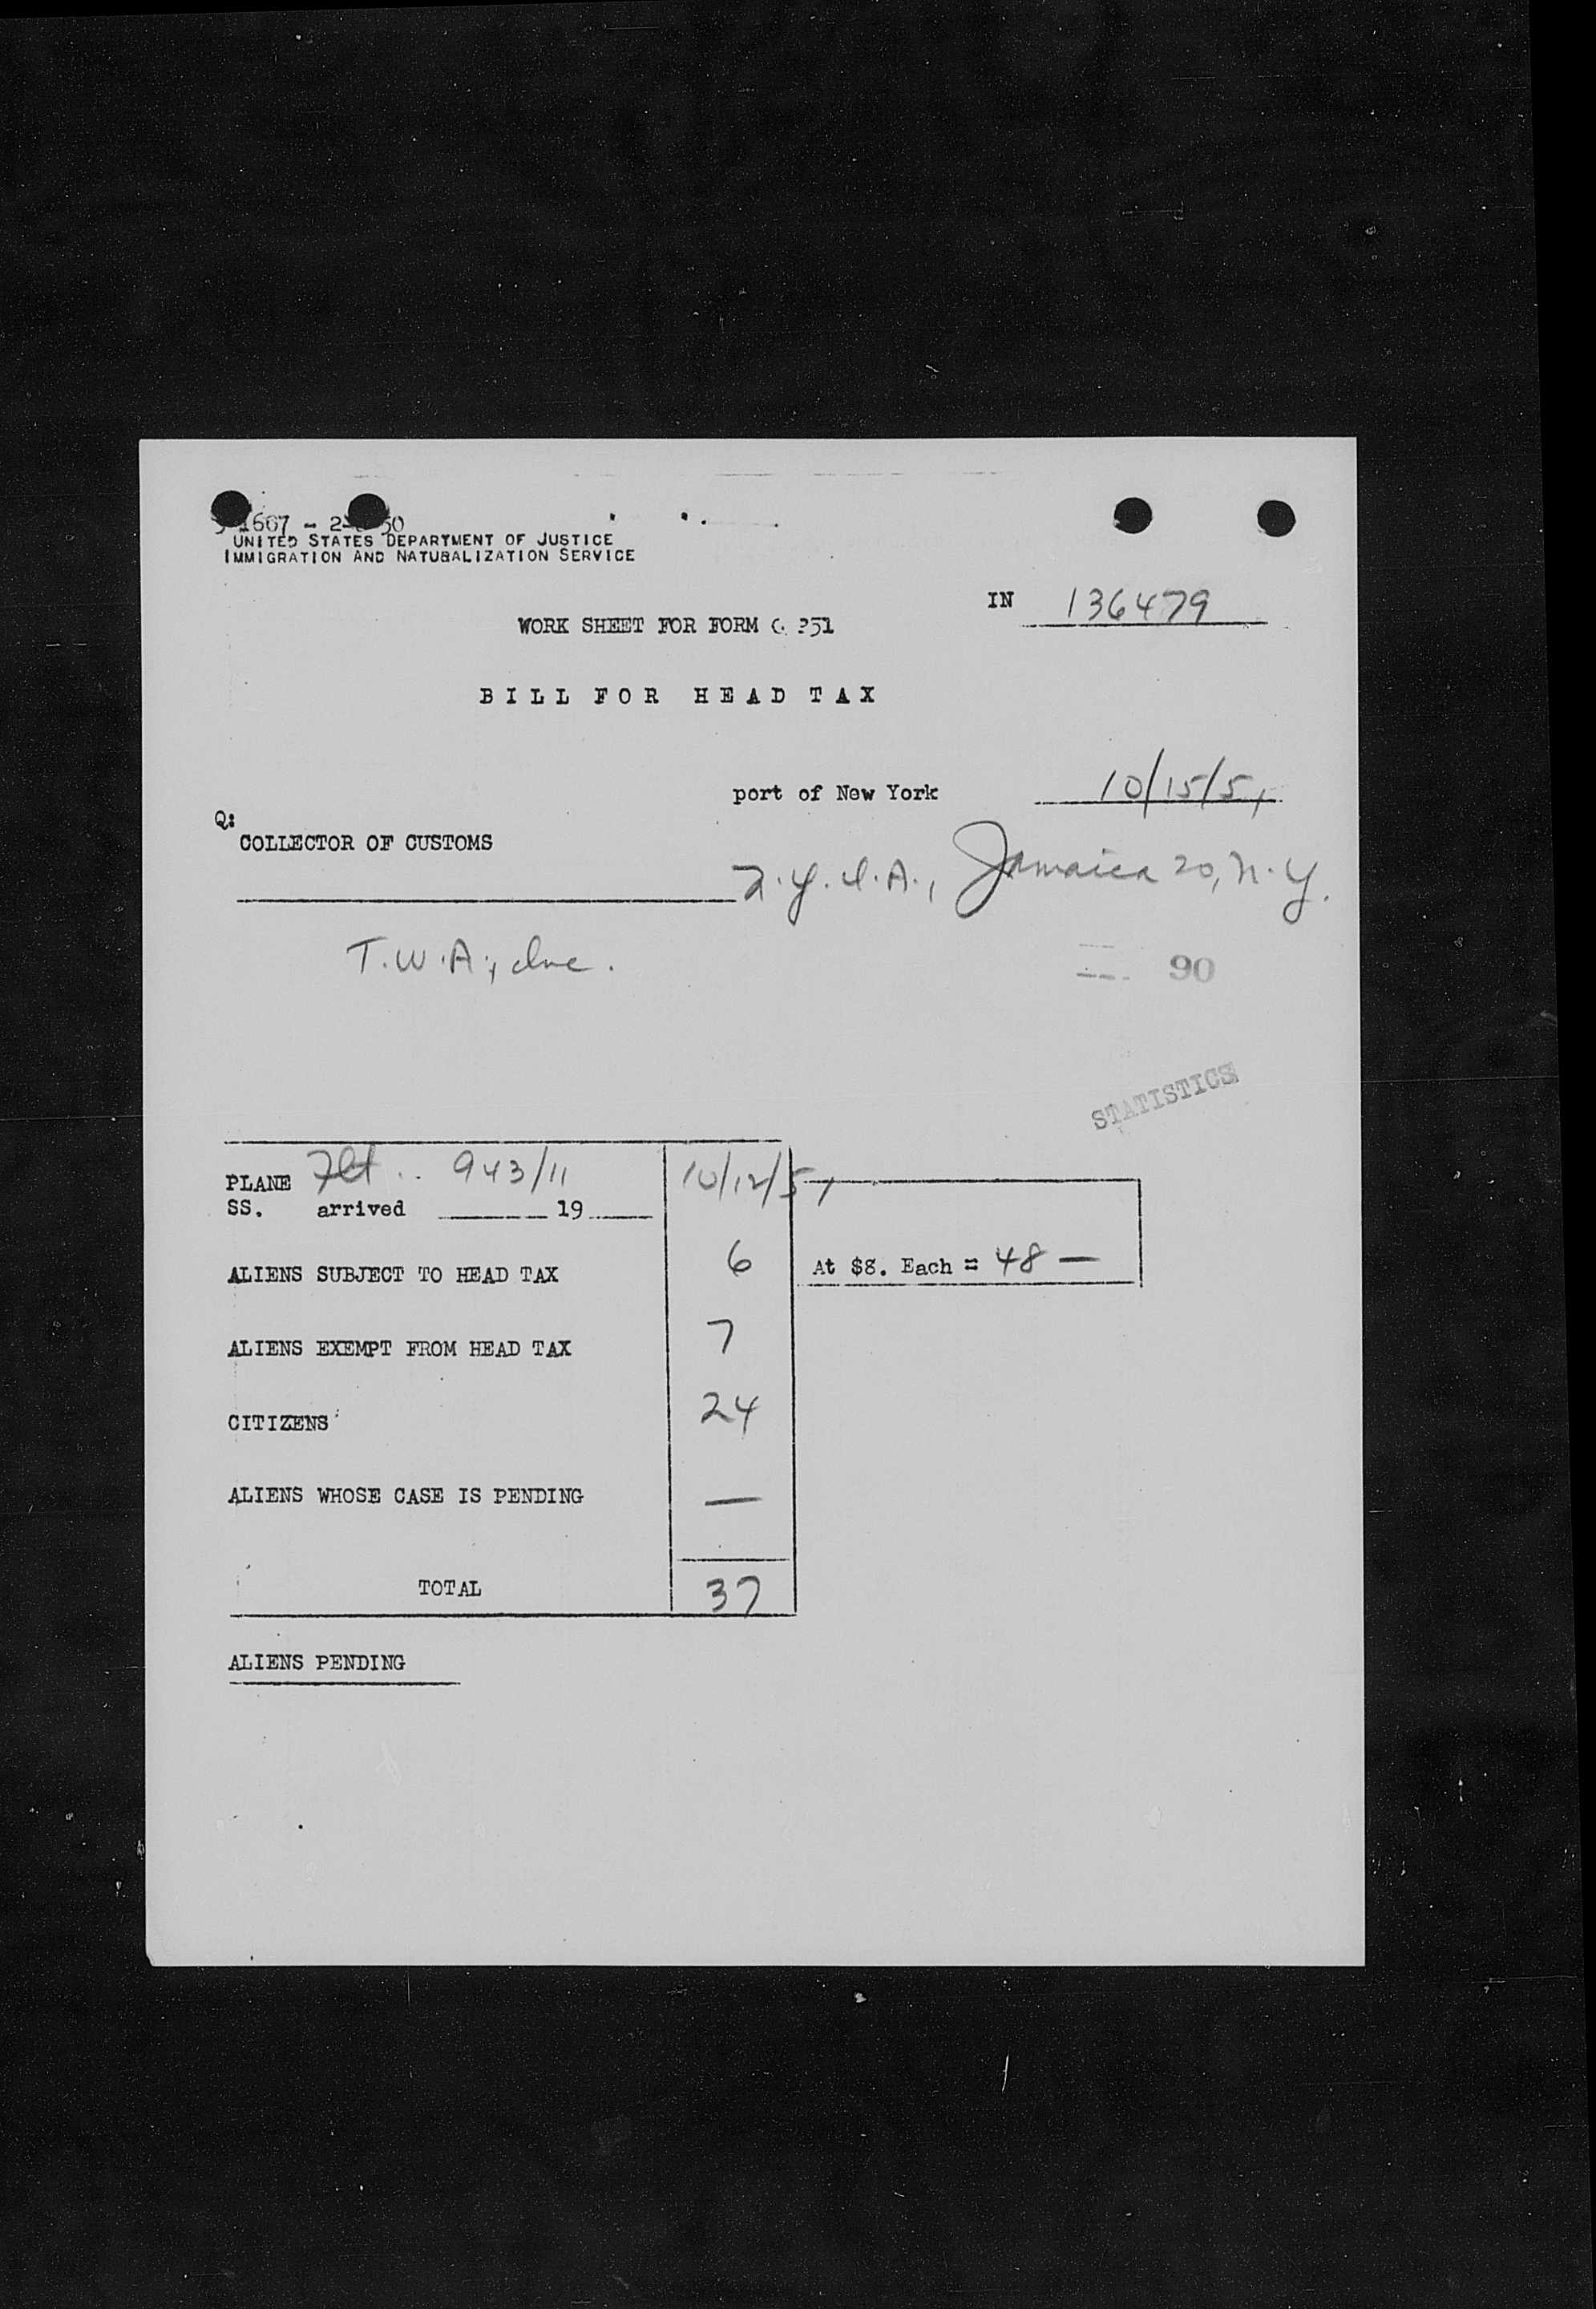 1607 - 2 50
UNITED STATES DEPARTMENT OF JUSTICE
IMMIGRATION AND NATURALIZATION SERVICE
IN 136479
WORK SHEET FOR FORM 51
BILL FOR HEAD TAX
port of New York 10/15/51
COLLECTOR OF CUSTOMS
N.Y.I.A., Jamaica 20, N.Y.
T.W.A., Inc.
90
STATISTICS
PLANE Flt. 943/11 10/12/51
SS. arrived 19
ALIENS SUBJECT TO HEAD TAX 6 At $8. Each = 48 —
ALIENS EXEMPT FROM HEAD TAX 7
CITIZENS 24
ALIENS WHOSE CASE IS PENDING —
TOTAL 37
ALIENS PENDING